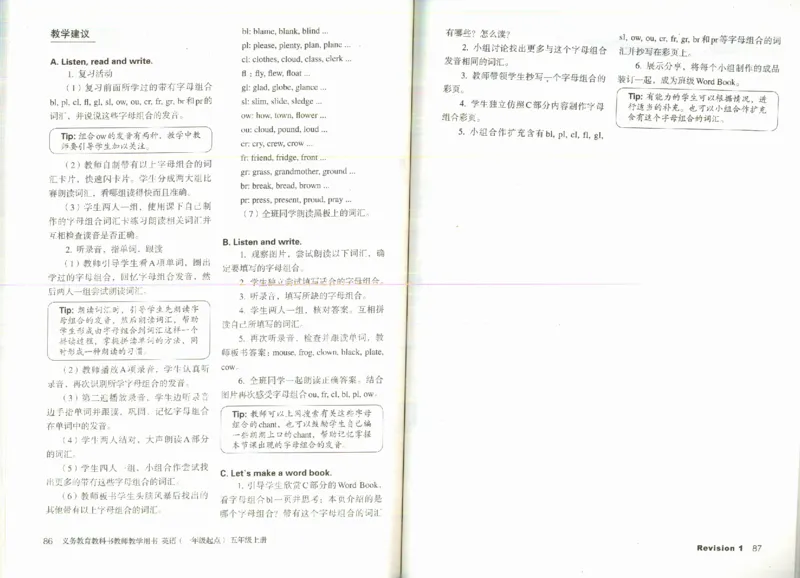 教学建议
A. Listen, read and write.
1. 复习活动
（1）复习前面所学过的带有字母组合
bl, pl, cl, fl, gl, sl, ow, ou, cr, fr, gr, br和pr的
词汇，并说说这些字母组合的发音。
Tip: 组合ow的发音有两种，教学中教
师要引导学生加以关注。
（2）教师自制带有以上字母组合的词
汇卡片，快速闪卡片。学生分成两大组比
赛朗读词汇，看哪组读得快而且准确。
（3）学生两人一组，使用课下自己制
作的字母组合词汇卡练习朗读相关词汇并
互相检查读音是否正确。
2. 听录音，指单词，跟读
（1）教师引导学生看A项单词，圈出
学过的字母组合，回忆字母组合发音，然
后两人一组尝试朗读词汇。
Tip: 朗读词汇时，引导学生先朗读字
母组合的发音，然后朗读词汇，帮助
学生形成由字母组合到词汇这样一个
拼读过程，掌握拼读单词的方法，同
时形成一种朗读的习惯。
（2）教师播放A项录音，学生认真听
录音，再次识别所学字母组合的发音。
（3）第二遍播放录音，学生边听录音
边手指单词并跟读，巩固、记忆字母组合
在单词中的发音。
（4）学生两人结对，大声朗读A部分
的词汇。
（5）学生四人一组，小组合作尝试找
出更多的带有这些字母组合的词汇。
（6）教师板书学生头脑风暴后找出的
其他带有以上字母组合的词汇。
bl: blame, blank, blind ...
pl: please, plenty, plan, plane ...
cl: clothes, cloud, class, clerk ...
fl : fly, flew, float ...
gl: glad, globe, glance ...
sl: slim, slide, sledge ...
ow: how, town, flower ...
ou: cloud, pound, loud ...
cr: cry, crew, crow ...
fr: friend, fridge, front ...
gr: grass, grandmother, ground ...
br: break, bread, brown ...
pr: press, present, proud, pray ...
（7）全班同学朗读黑板上的词汇。
B. Listen and write.
1. 观察图片，尝试朗读以下词汇，确
定要填写的字母组合。
2. 学生独立尝试填写适合的字母组合。
3. 听录音，填写所缺的字母组合。
4. 学生两人一组，核对答案。互相拼
读自己所填写的词汇。
5. 再次听录音，检查并跟读单词，教
师板书答案：mouse, frog, clown, black, plate,
cow。
6. 全班同学一起朗读正确答案。结合
图片再次感受字母组合ou, fr, cl, bl, pl, ow。
Tip: 教师可以上网搜索有关这些字母
组合的chant，也可以鼓励学生自己编
一些朗朗上口的chant，帮助记忆掌握
本节课出现的字母组合的发音。
C. Let's make a word book.
1. 引导学生欣赏C部分的Word Book，
看字母组合bl一页并思考：本页介绍的是
哪个字母组合？带有这个字母组合的词汇
86 义务教育教科书教师教学用书 英语（一年级起点）五年级上册
有哪些？怎么读？
2. 小组讨论找出更多与这个字母组合
发音相同的词汇。
3. 教师带领学生抄写一个字母组合的
彩页。
4. 学生建立仿照C部分内容制作字母
组合彩页。
5. 小组合作扩充含有bl, pl, cl, fl, gl,
sl, ow, ou, cr, fr, gr, br和pr等字母组合的词
汇并抄写在彩页上。
6. 展示分享，将每个小组制作的成品
装订一起，成为班级Word Book。
Tip: 有能力的学生可以根据情况，进
行适当的补充。也可以小组合作扩充
含有这个字母组合的词汇。
Revision 1 87